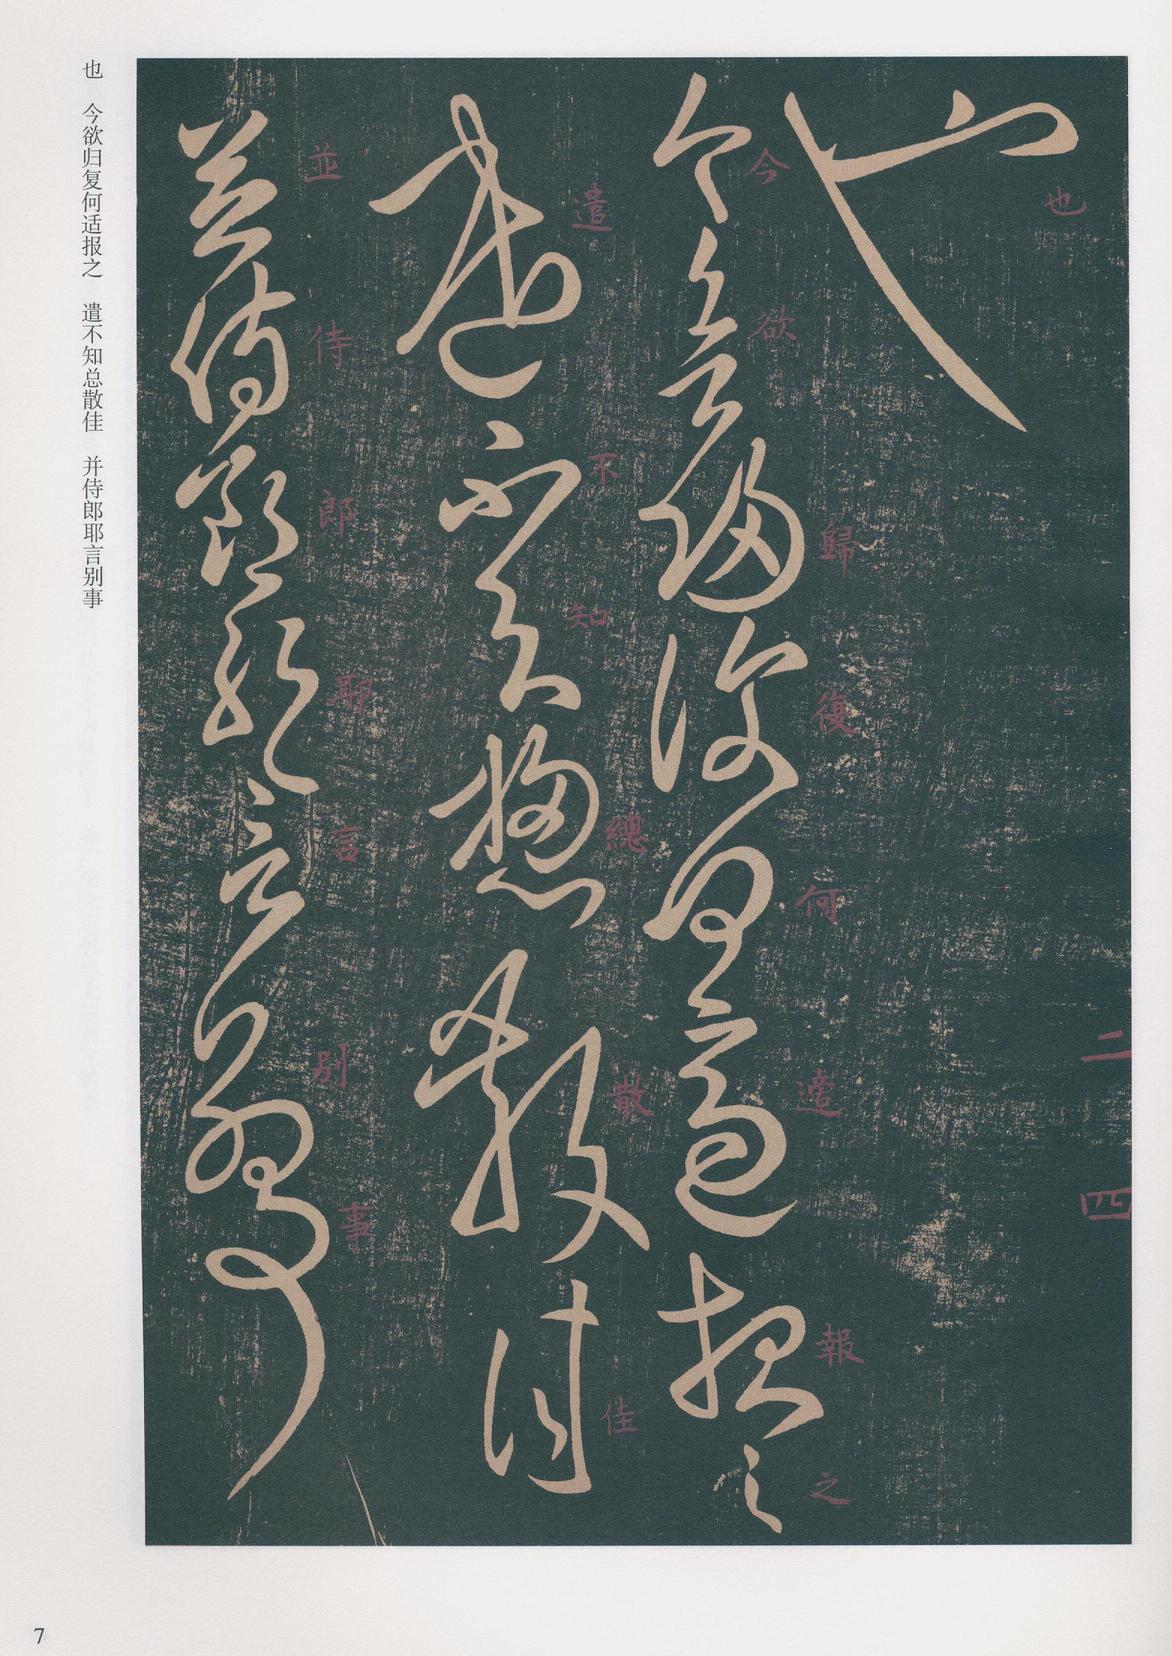 也
今欲歸復何適報之
遣不知總散佳
並侍郎耶言别事
二四
也 今欲归复何适报之 遣不知总散佳 并侍郎耶言别事
7